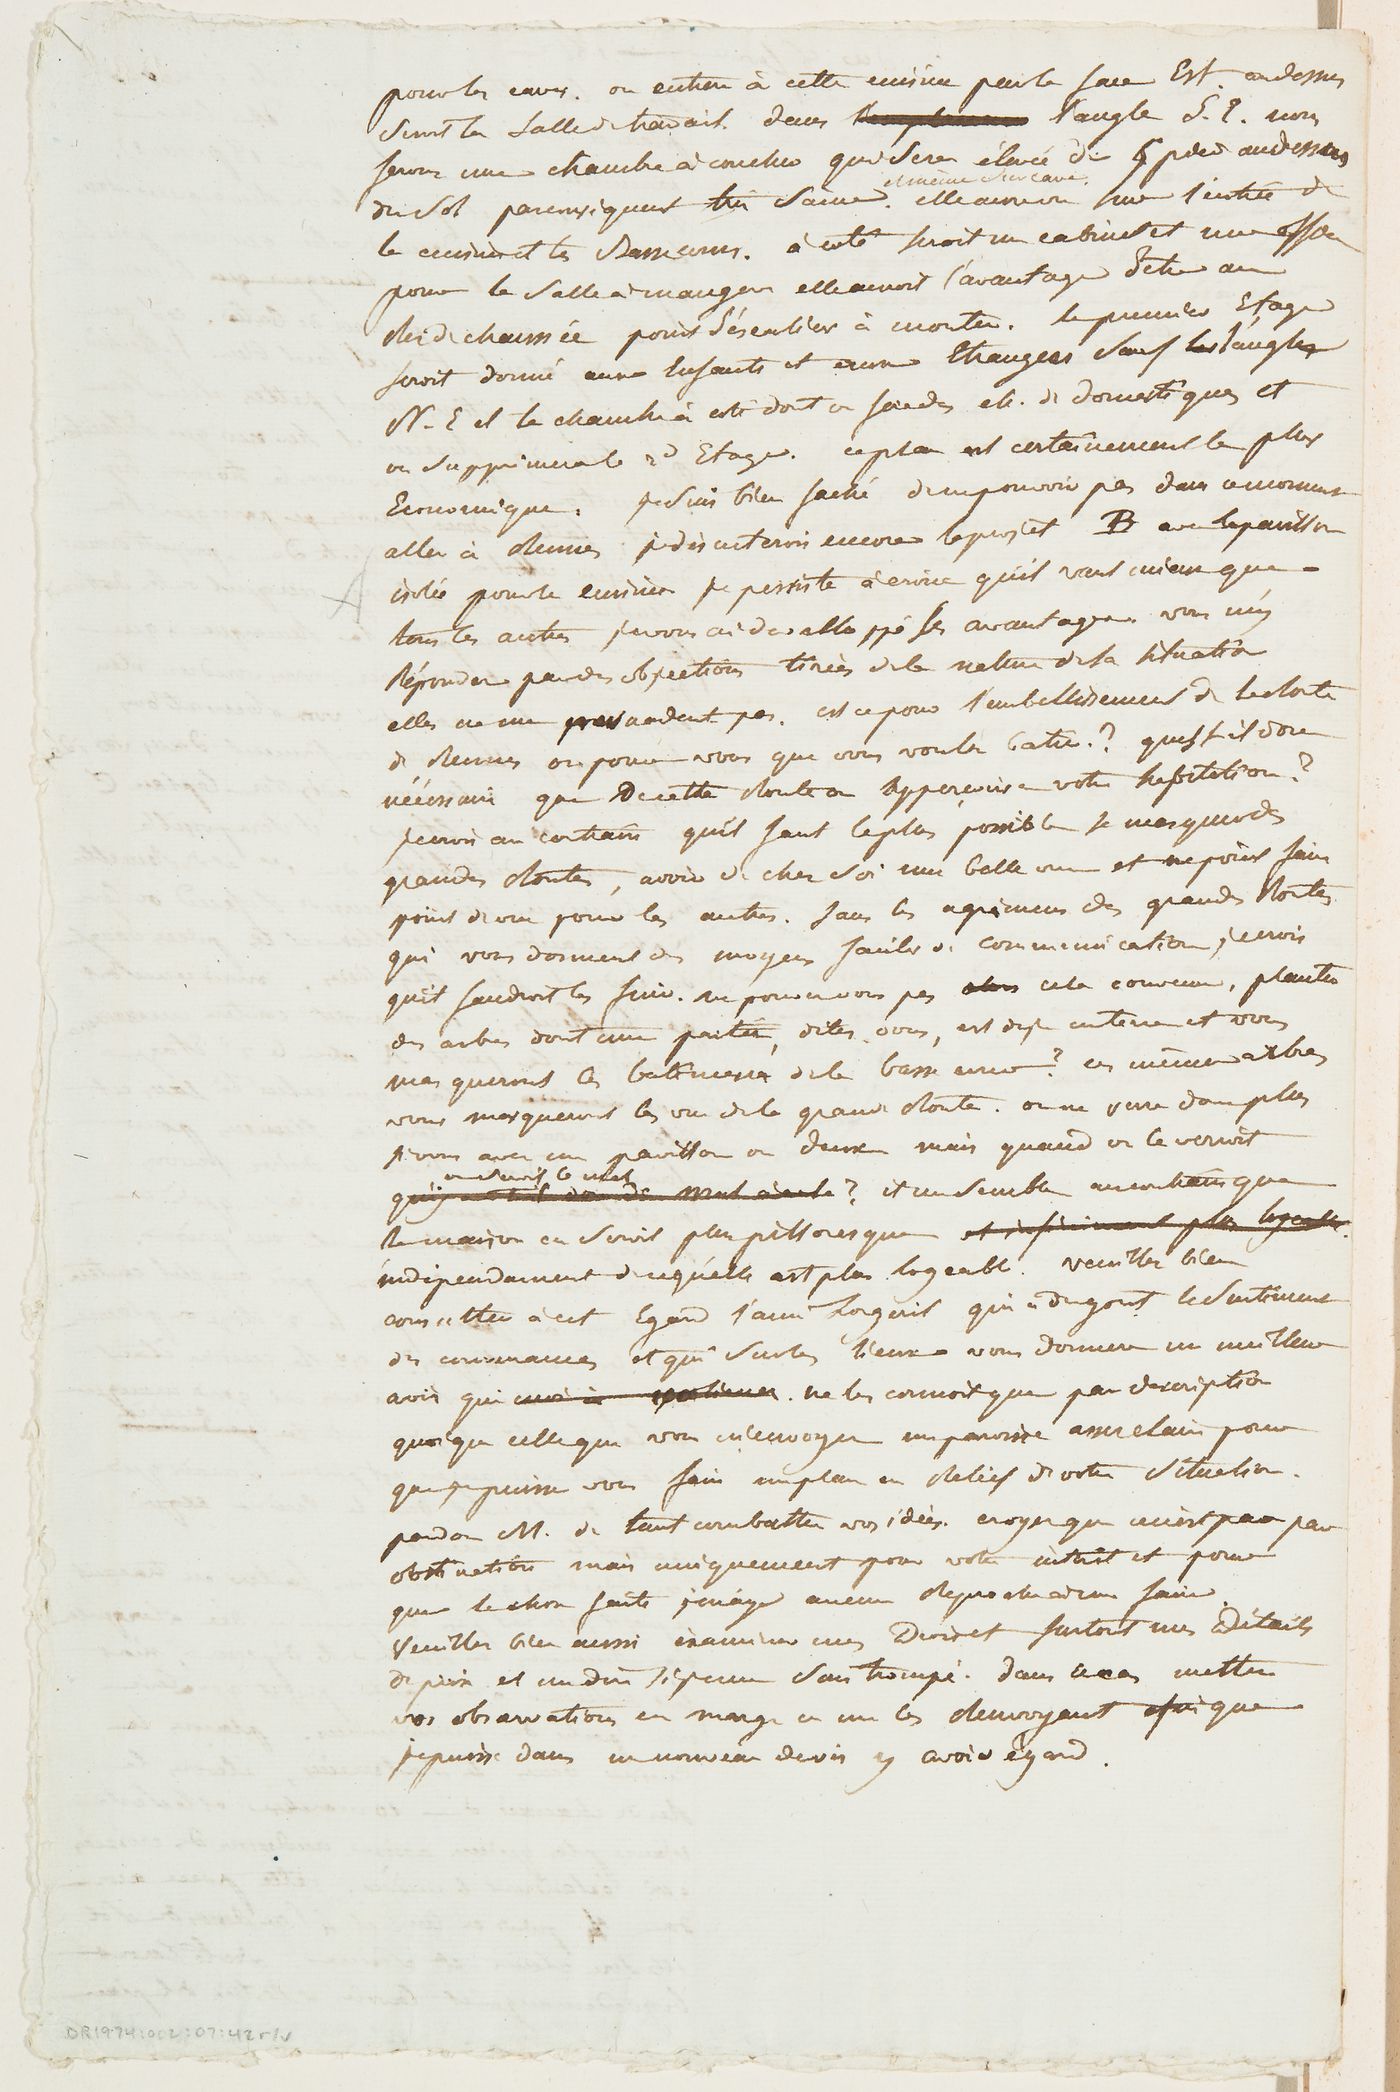 pour les caves. on entrera à cette cuisine par la face Est. audessus
seroit la Salle de travail. dans l'angle S. E. nous
ferons une chambre à coucher qui sera élevée de 5 pieds audessus
et même sur cave.
du sol par consequent très saine. elle auroit vue sur l'entrée de
la cuisine et les Basse cours. à coté seroit un cabinet et une office
pour la salle à manger elle auroit l'avantage d'etre au
Rez de chaussée point d'éscalier à monter. le premier Etage
seroit donné aux Enfants et aux Etrangers sauf l'angle
N. E et la chambre à coté dont on fera des ch. de domestiques et
on supprimera le 2d Etage. ce plan est certainement le plus
Economique. je suis bien faché de ne pouvoir pas dans ce moment
aller à Rennes je discuterois encore le projet B avec le pavillon
isolé pour la cuisine je persiste à croire qu'il vaut mieux que
tous les autres je vous ai développé ses avantages vous m'y
Répondez par des objections tirées de la nature de la situation
elles ne me persuadent pas. est ce pour l'embellissement de la Route
de Rennes ou pour vous que vous voulez batir? quest il donc
nécéssaire que de cette Route on apperçoive votre habitation?
je crois au contraire qu'il faut le plus possible se masquer des
grandes Routes, avoir de chez soi une belle vue et ne point faire
point de vue pour les autres. sans les agrémens des grandes Routes
qui vous donnent des moyens faciles de communication, je crois
qu'il faudroit les fuir. ne pouvez vous pas cela convenu, planter
des arbres dont une partie, dites vous, est deja en terre et vous
masqueront les batimens de la basse cour? ces mêmes arbres
vous masqueront la vue de la grande Route. on ne verra donc plus
je vous avec un pavillon ou deux mais quand on le verroit
ou seroit le mal
qu'y auroit il donc de mal à cela? il me semble au contraire que
la maison en seroit plus pittoresque et infiniment plus logeable.
indépendament de ce qu'elle est plus logeable. veuillez bien
consulter à cet Egard l'ami Lorgeril qui a du gout le sentiment
des convenances et qui sur les lieux vous donnera un meilleur
avis que moi qui ne les connoit que par description
quoique celle que vous m'envoyez me paroisse assez claire pour
que je puisse vous faire un plan en Relief de votre situation.
pardon M. de tant combattre vos idées. croyez que ce n'est pas par
obstination mais uniquement pour votre intérêt et pour
que la chose faite je n'aye aucun Reproche à me faire.
Veuillez bien aussi éxaminer mes Devis et surtout mes Détails
de prix et me dire si je me suis trompé. dans ce cas mettez
vos observations en marge en me les Renvoyant afin que
je puisse dans un nouveau devis y avoir égard.
DR1974:002:07:42 r/v